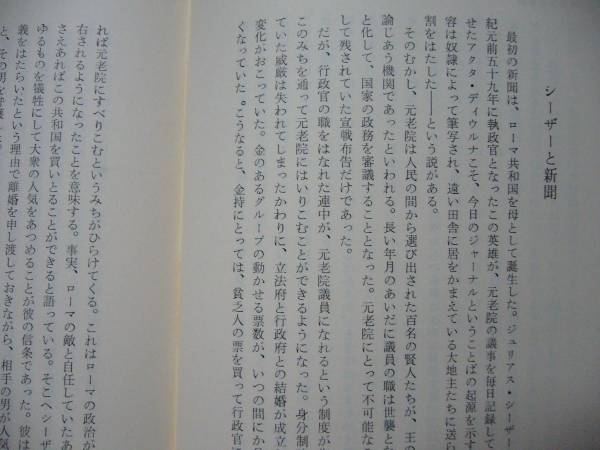 シーザーと新聞
最初の新聞は、ローマ共和国を母として誕生した。ジュリアス・シーザー
紀元前五十九年に執政官となったこの英雄が、元老院の議事を毎日記録して
せたアクタ・ディウルナこそ、今日のジャーナルということばの起源を示す
容は奴隷によって筆写され、遠い田舎に居をかまえている大地主たちに送ら
割をはたした――という説がある。
そのむかし、元老院は人民の間から選び出された百名の賢人たちが、王の
論じあう機関であったといわれる。長い年月のあいだに議員の職は世襲とな
と化して、国家の政務を審議することとなった。元老院にとって不可能な
して残されていた宣戦布告だけであった。
だが、行政官の職をはなれた連中が、元老院議員になれるという制度が
このみちを通って元老院にはいりこむことができるようになった。身分制
ていた威厳は失われてしまったかわりに、立法府と行政府との結婚が成立
変化がおこっていた。金のあるグループの動かせる票数が、いつの間にか
くなっていた。こうなると、金持にとっては、貧乏人の票を買って行政官に
れば元老院にすべりこむというみちがひらけてくる。これはローマの政治が
右されるようになったことを意味する。事実、ローマの敵と自任していたあ
さえあればこの共和国を買いとることができると語っている。そこへシーザ
ゆるものを犠牲にして大衆の人気をあつめることが彼の信条であった。彼は
義をはたらいたという理由で離婚を申し渡しておきながら、相手の男が人気
と、その男を